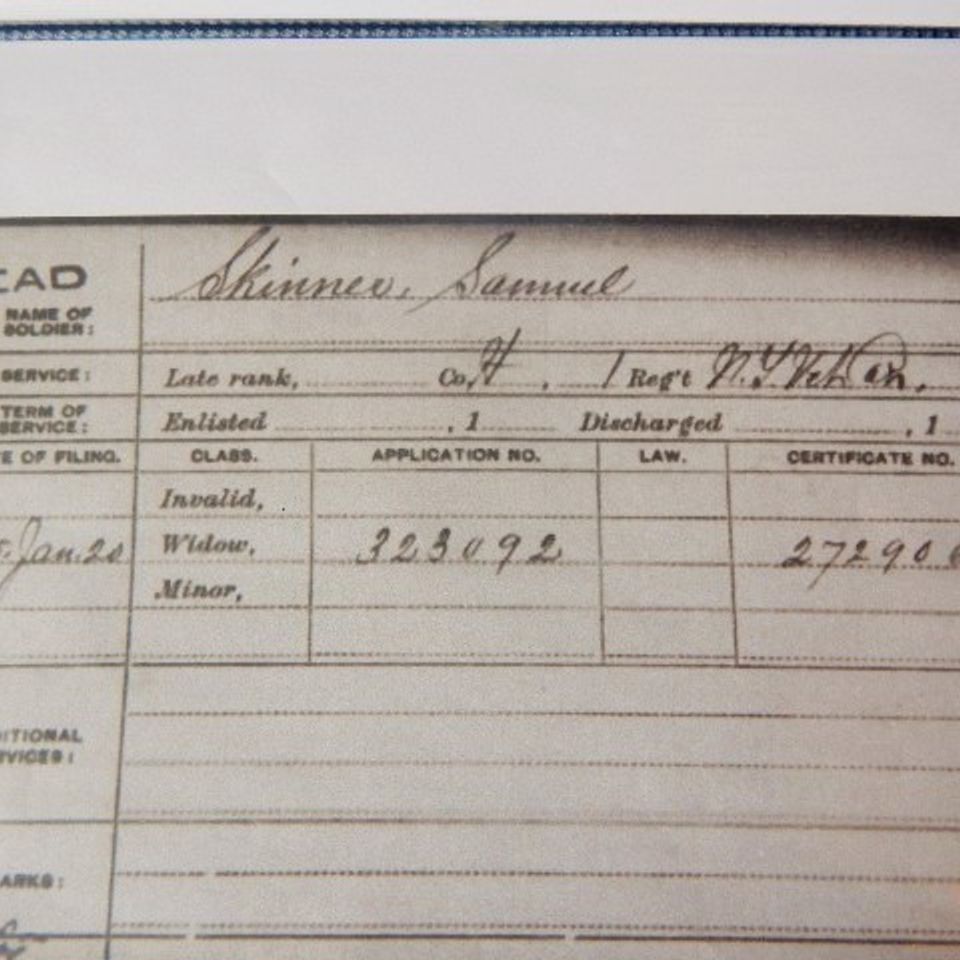 EAD
Skinner, Samuel
NAME OF
SOLDIER:
SERVICE: Late rank, Co. H, 1 Reg't N.Y. Vet Cav.
TERM OF
SERVICE: Enlisted , 1 Discharged , 1
E OF FILING. CLASS. APPLICATION NO. LAW. CERTIFICATE NO.
Invalid,
Jan. 20 Widow, 323092 27290
Minor,
DITIONAL
RVICES:
ARKS: